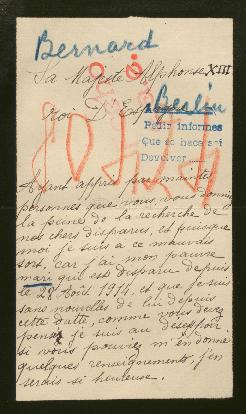 Bernard
Sa Majesté Alphonse XIII
Roi D'Espagne
Berlin
Pedir informes
Que se haca
Devolver
Ayant appris par maintes
personnes que vous vous donniez
la peine de la recherche de
nos chers disparus, et puisque
moi je suis a ce mauvais
sort, car j'ai mon pauvre
mari qui est disparu depuis
le 28 Août 1914, et que je suis
sans nouvelles de lui depuis
cette datte, comme vous devez
penser je suis au desespoir
si vous pouvez m'en donner
quelques renseignements, j'en
serais si heureuse.